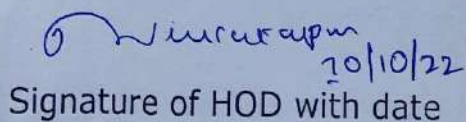 20/10/22
Signature of HOD with date